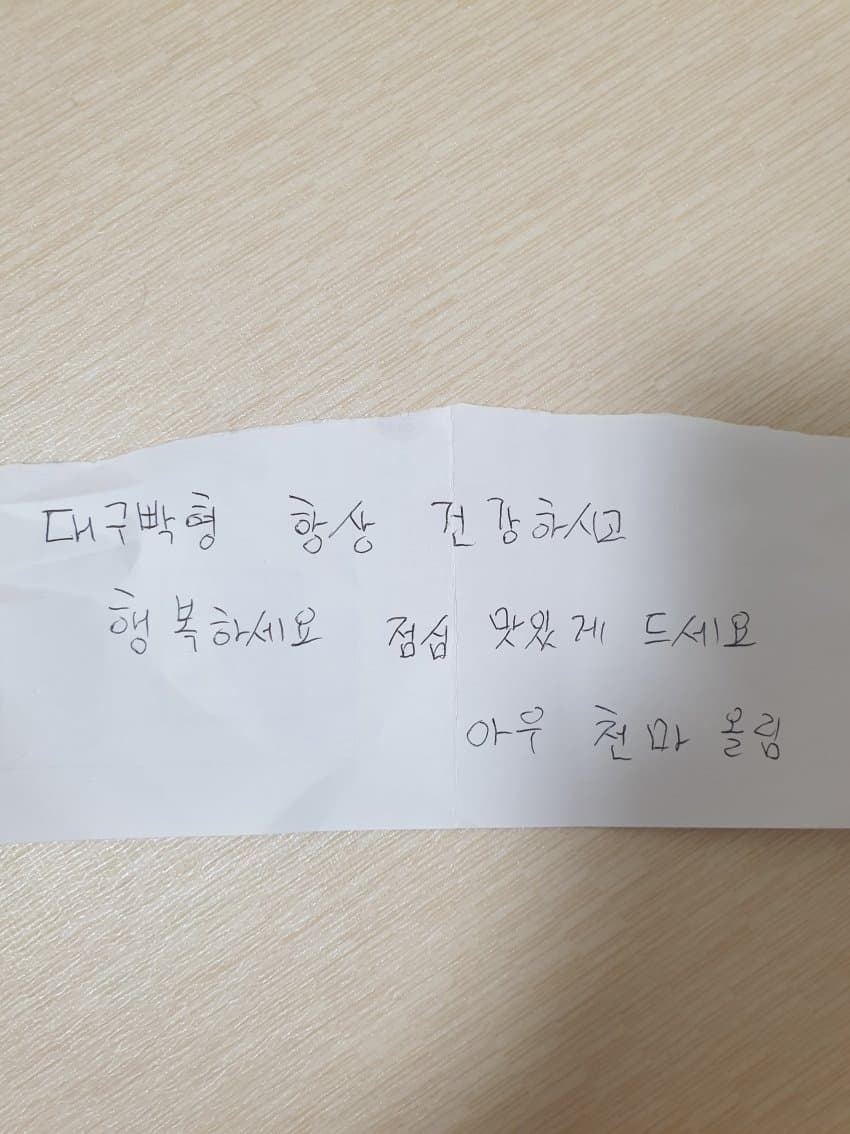 대구박형 항상 건강하시고
행복하세요 점심 맛있게 드세요
아우 천마 올림